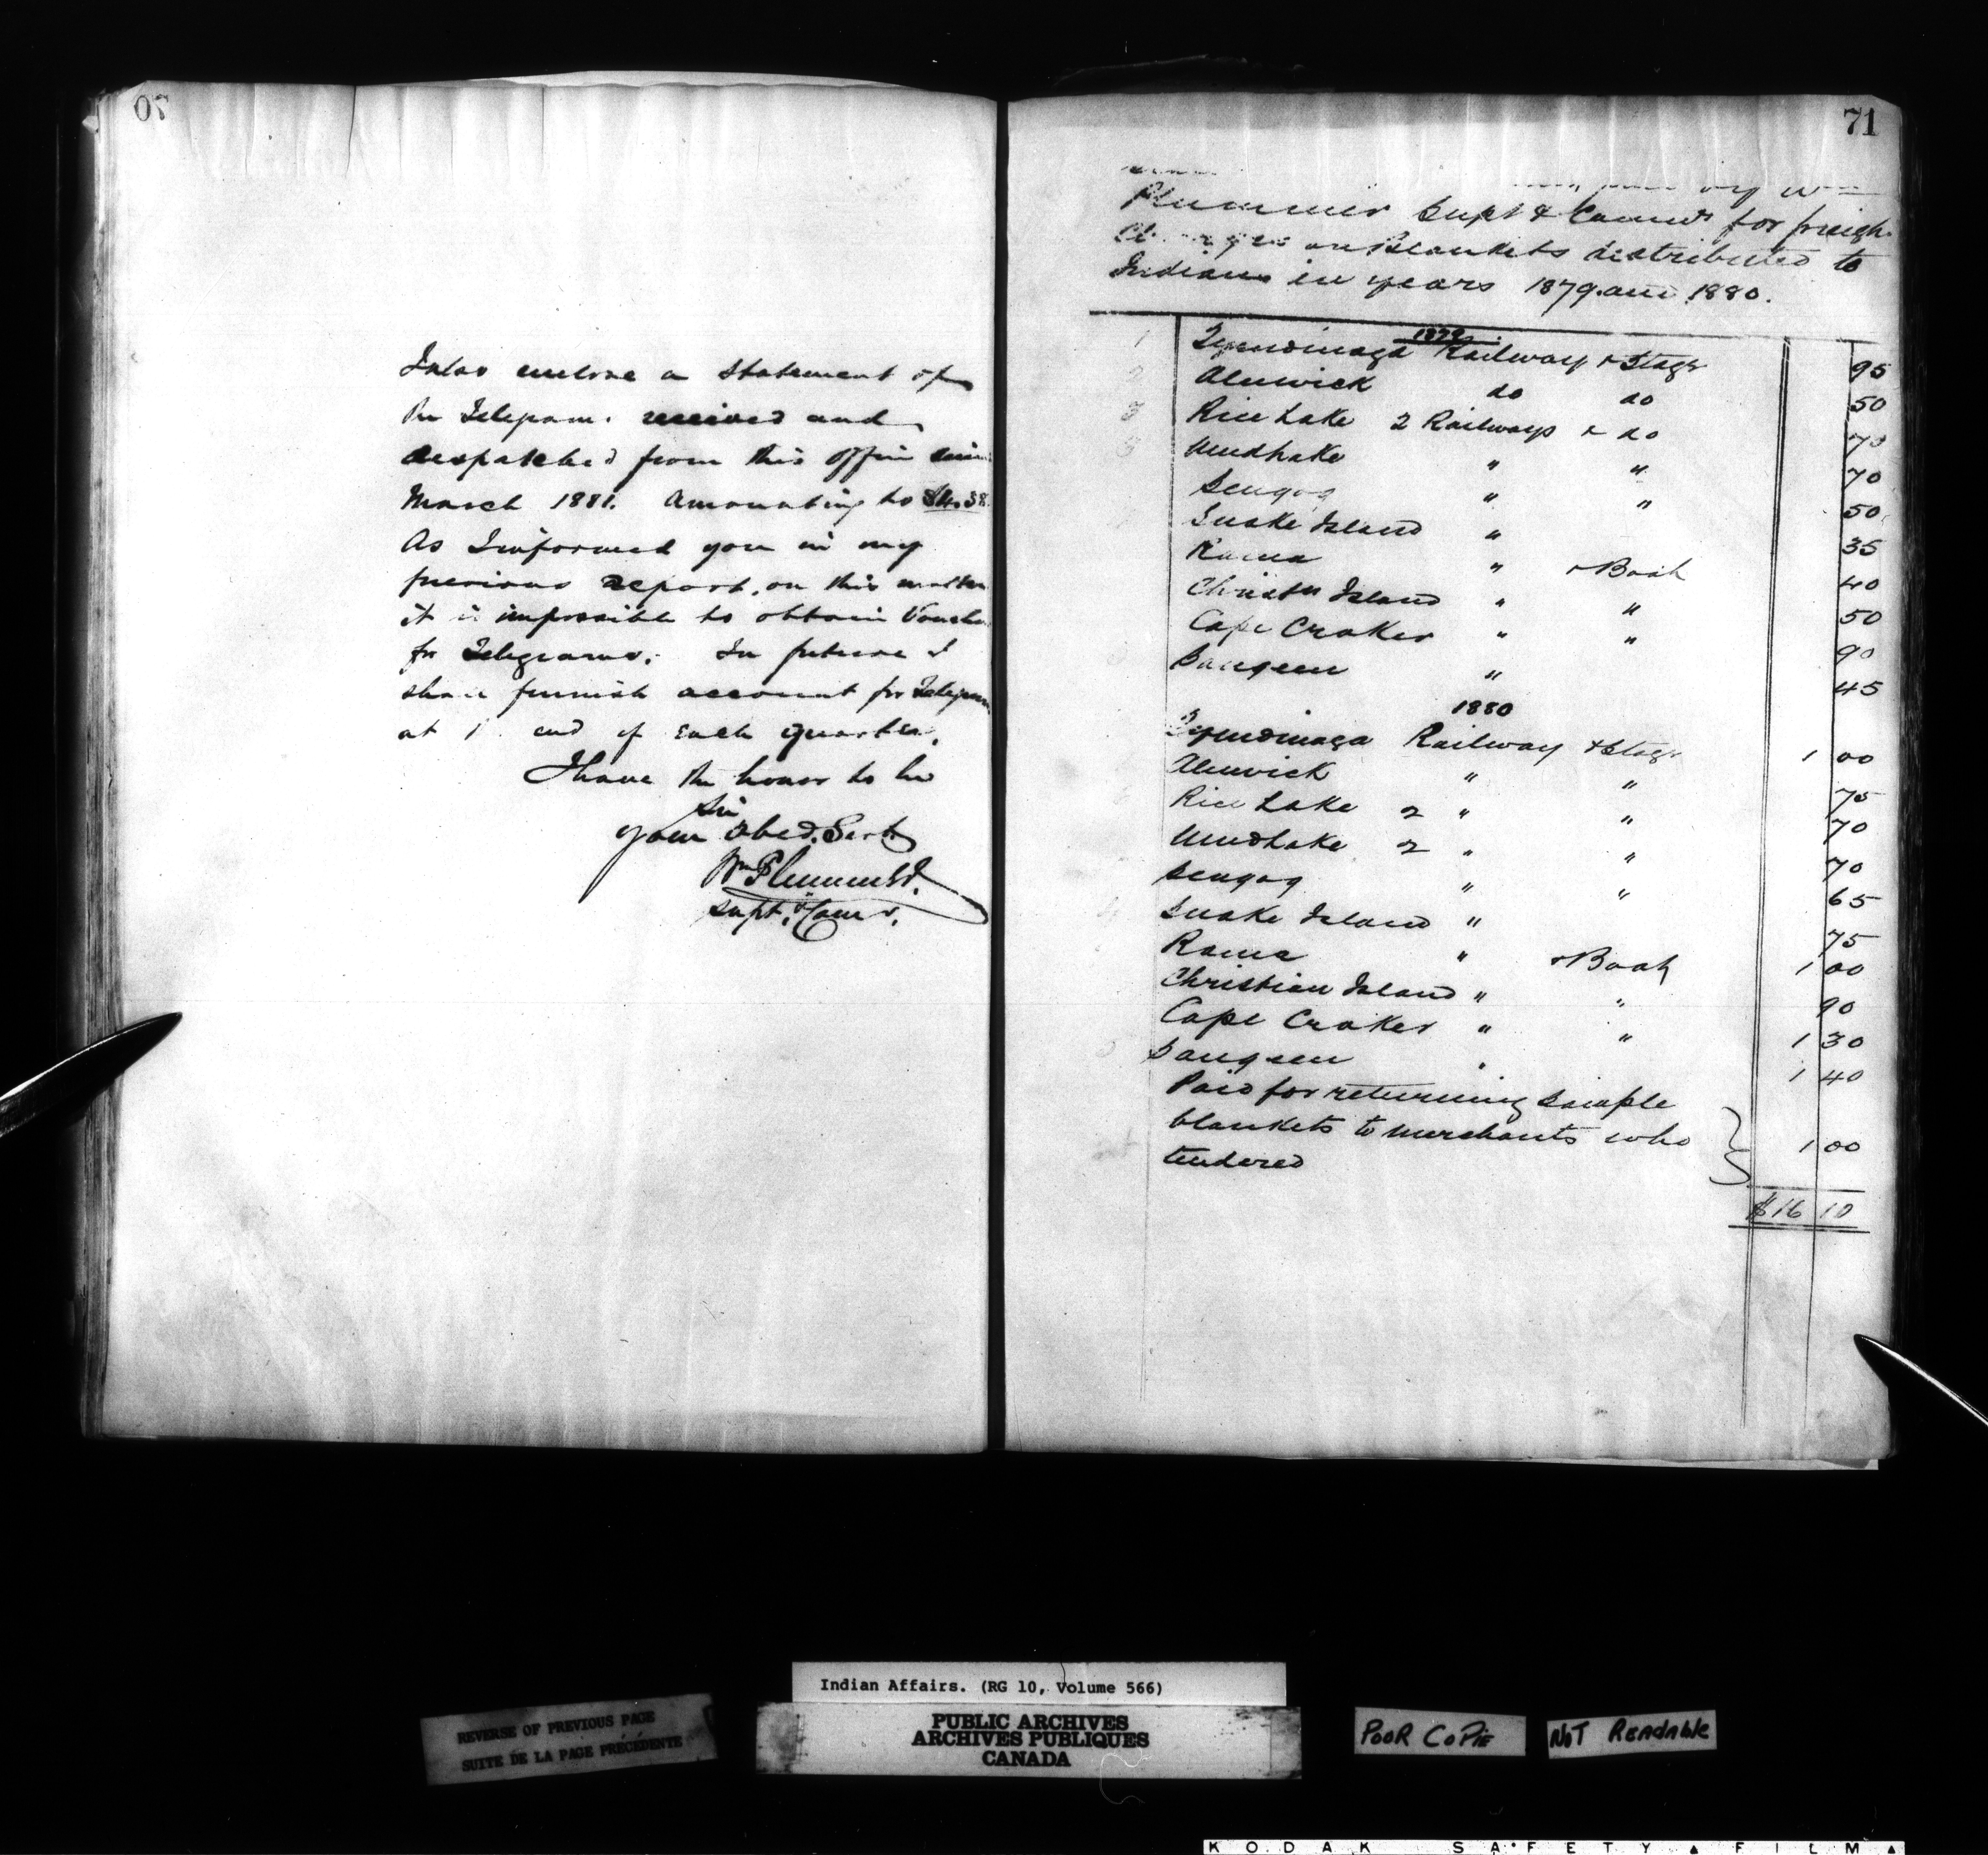 70
I also enclose a Statement of
the Telegrams received and
despatched from this office since
March 1881. Amounting to
As I informed you in my
previous report, on this matter
it is impossible to obtain Vouche
for Telegrams. In future I
shall furnish account for Telegram
at end of each quarter.
I have the honor to be
Sir
your Obed. Servt
Wm Plummer
Supt. & Comr.
71
Plummer Supt & Commr for freigh
Charges on Blankets distributed to
Indians in years 1879 and 1880.
1879
1 Tyendinaga Railway & Stage 95
2 Alnwick do do 50
3 Rice Lake 2 Railways & do 70
Mud Lake " " 70
Scugog " " 50
Snake Island " 35
Rama " & Boat 40
Christn Island " " 50
Cape Croker " " 90
Saugeen " 45
1880
Tyendinaga Railway & Stage 1 00
Alnwick " " 75
Rice Lake 2 " " 70
Mud Lake 2 " " 70
Scugog " " 65
Snake Island " 75
Rama " & Boat 1 00
Christian Island " " 90
Cape Croker " " 1 30
Saugeen " 1 40
Paid for returning Sample
blankets to merchants who
tendered 1 00
$16 10
Indian Affairs. (RG 10, Volume 566)
REVERSE OF PREVIOUS PAGE
SUITE DE LA PAGE PRÉCÉDENTE
PUBLIC ARCHIVES
ARCHIVES PUBLIQUES
CANADA
POOR COPIE
NOT READABLE
KODAK SAFETY FILM